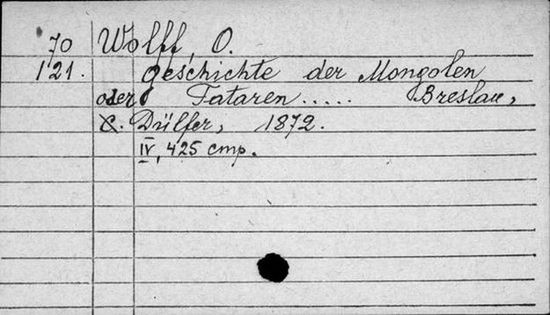 70 Wolff, O.
121. Geschichte der Mongolen
oder Tataren..... Breslau,
C. Dülfer, 1872.
IV, 425 стр.